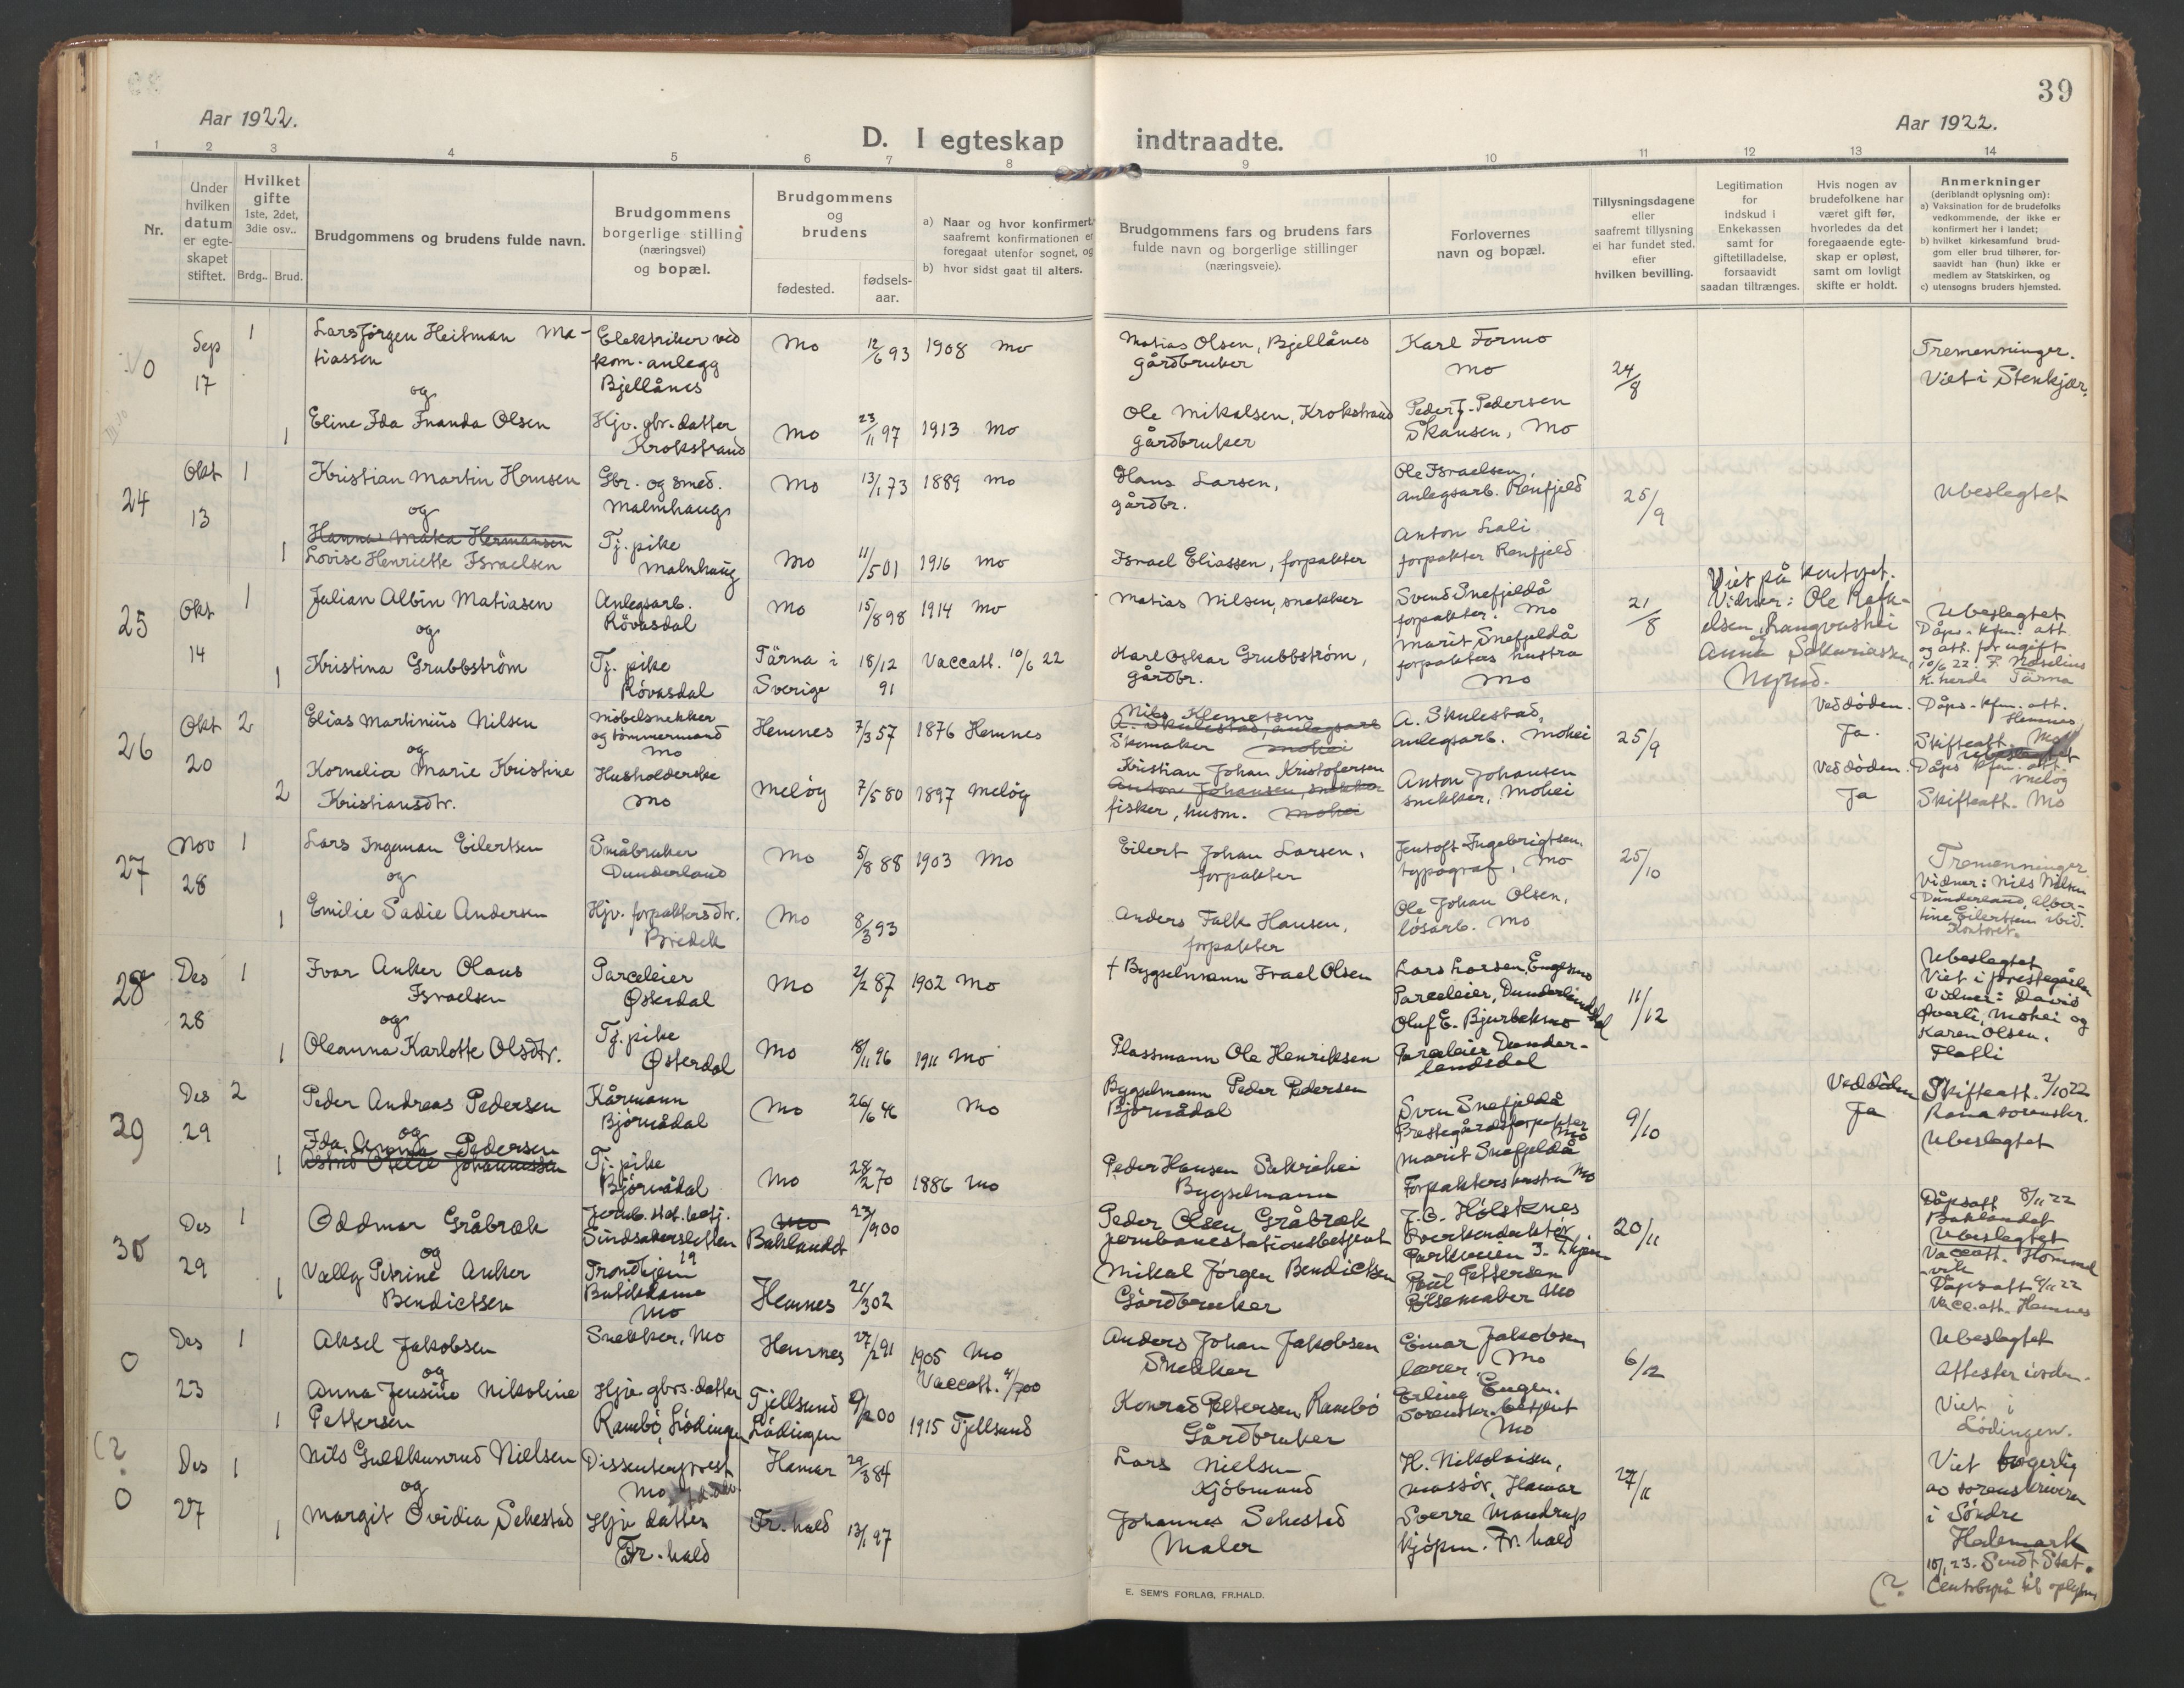 39
Aar 1922.
Aar 1922.
D. I egteskap indtraadte.
1 2 3 4 5 6 7 8 9 10 11 12 13 14
Nr.
Under hvilken datum er egte-skapet stiftet.
Hvilket gifte 1ste, 2det, 3die osv..
Brdg.. Brud.
Brudgommens og brudens fulde navn.
Brudgommens borgerlige stilling (næringsvei) og bopæl.
Brudgommens og brudens
fødested.
fødsels-aar.
a) Naar og hvor konfirmert, saafremt konfirmationen er foregaat utenfor sognet, og
b) hvor sidst gaat til alters.
Brudgommens fars og brudens fars fulde navn og borgerlige stillinger (næringsveie).
Forlovernes navn og bopæl.
Tillysningsdagene eller saafremt tillysning ei har fundet sted. efter hvilken bevilling.
Legitimation for indskud i Enkekassen samt for giftetilladelse, forsaavidt saadan tiltrænges.
Hvis nogen av brudefolkene har været gift før, hvorledes da det foregaaende egte-skap er opløst, samt om lovligt skifte er holdt.
Anmerkninger
(deriblandt oplysning om):
a) Vaksination for de brudefolks vedkommende, der ikke er konfirmert her i landet;
b) hvilket kirkesamfund brud-gom eller brud tilhører, for-saavidt han (hun) ikke er medlem av Statskirken, og
c) utensogns bruders hjemsted.
0 Sep 17 1 Lars Jørgen Heitman Ma-tiassen Elektriker ved kom. anlegg Bjellånes Mo 12/6 93 1908 Mo Matias Olsen, Bjellånes gårdbruker Karl Formo Mo 24/8 Tremenninger. Viet i Stenkjær.
og
1 Eline Ida Inanda Olsen Hjv. gbr. datter Krokstrand Mo 23/11 97 1913 Mo Ole Mikalsen, Krokstrand gårdbruker Peder J. Pedersen Skansen, Mo
24 Okt 13 1 Kristian Martin Hansen Gbr. og smed. Malmhaug Mo 13/1 73 1889 Mo Hans Larsen, gårdbr. Ole Israelsen, anlegsarb. Renfjeld 25/9 Ubeslegtet
og
Hanna Maka Hermansen
1 Lovise Henriette Israelsen Tj. pike Malmhaug Mo 11/5 01 1916 Mo Israel Eliassen, forpakter Anton Lali forpakter Renfjeld
25 Okt 14 1 Julian Albin Matiasen Anlegsarb. Røvasdal Mo 15/8 98 1914 Mo Matias Nilsen, snekker Svend Snefjeldå forpakter. Mo 21/8 Viet på kontoret. Vidner: Ole Rafa-elsen, Langvashei og Anna Sakariassen, Ubeslegtet
og
1 Kristina Grubbström Tj. pike Røvasdal Tärna i Sverige 18/12 91 Vaccatt. 10/6 22 Karl Oskar Grubbström, gårdbr. Marit Snefjeldå forpakters hustru Mo Dåps- kfm. att. og att. for ugift 10/6 22. F. Noselius K. herde Tärna
26 Okt 20 2 Elias Martinius Nilsen Møbelsnekker og tømmermand Mo Hemnes 7/3 57 1876 Hemnes Nils Klemetsen Skomaker A. Skulestad, anlegsarb. Mohei A. Skulestad, anlegsarb. Mohei 25/9 Ved døden. Ja. Dåps- kfm. att. Hemnes Skifteatt. Mo
og
2 Kornelia Marie Kristine Kristiansdtr. Husholderske Mo Meløy 7/5 80 1897 Meløy Kristian Johan Kristofersen Anton Johansen, snekker fisker, husm. Mohei Anton Johansen snekker, Mohei Ved døden. Ja Dåps kfm. att. Meløy Skifteatt. Mo
27 Nov 28 1 Lars Ingeman Eilertsen Småbruker Dunderland Mo 5/8 88 1903 Mo Eilert Johan Larsen, forpakter Jentoft Ingebrigtsen, typograf, Mo 25/10 Tremenninger. Vidner: Nils Nilsen Dunderland, Alber-tine Eilertsen ibid. Kontoret.
og
1 Emilie Sadie Andersen Hjv. forpaktersdtr. Bredek Mo 8/3 93 Anders Falk Hansen, forpakter Ole Johan Olsen, løsarb. Mo
28 Des 28 1 Ivar Anker Olaus Israelsen Parceleier Østerdal Mo 2/2 87 1902 Mo † Bygselmann Israel Olsen Lars Larsen, Engesmo Parceleier, Dunderlandsdal 11/12 Ubeslegtet Viet i prestegården Vidner: David Øverli, Mohei og Karen Olsen. Flatli
og
1 Oleanna Karlotte Olsdtr. Tj. pike Østerdal Mo 18/11 96 1911 Mo Plassmann Ole Henriksen Oluf E. Bjurbekmo Parceleier Dunder-landsdal
29 Des 29 2 Peder Andreas Pedersen Kårmann Bjørnådal Mo 26/6 46 Mo Bygselmann Peder Pedersen Bjørnådal Sven Snefjeldå Prestegårdsforpakter Mo 9/10 Ved døden Ja Skifteatt. 2/10 22 Rana sorenskr. Ubeslegtet
og
1 Ida Anna Pedersen Astrid Otelie Johannessen Tj. pike Bjørnådal Mo 28/2 70 1886 Mo Peder Hansen Sakrihei Bygselmann Marit Snefjeldå Forpakters hustru Mo
30 Des 29 1 Oddmar Gråbræk Jernb. stat. betj. Sindsakersletten 19 Trondhjem Mo Baklandet 23/ 900 Peder Olsen Gråbræk jernbanestationsbetjent J. O. Holstenes Overkonduktør Parkveien 3. Thjem 20/11 Dåpsatt 8/11 22 Baklandet Ubeslegtet Vaccatt. Hommel-vik
og
1 Vally Petrine Anker Bendictsen Butikdame Mo Hemnes 21/3 02 Mikal Jørgen Bendictsen Gårdbruker Paul Pettersen Pølsemaker Mo Dåpsatt 9/11 22 Vacc. att. Hemnes
0 Des 23 1 Aksel Jakobsen Snekker, Mo Hemnes 27/2 91 1905 Mo Anders Johan Jakobsen Snekker Einar Jakobsen lærer. Mo 6/12 Ubeslegtet Attester iorden.
og
1 Anna Jensine Nikoline Pettersen Hjv. gbrs. datter Rambø, Lødingen Tjellsund Lødingen 00 Vaccatt. 4/7 00 1915 Tjellsund Konrad Pettersen Rambø Gårdbruker Erling Eugen. Sorenskr. betjent Mo Viet i Lødingen.
(? 0 Des 27 1 Nils Guldkunrud Nielsen Dissenterprest Mo Hamar 29/3 84 Lars Nielsen Kjøbmand H. Nikolaisen, massør, Hamar 27/11 Viet borgerlig av sorenskriveren i Søndre Hedemark
og
1 Margit Ovidia Sehested Hjv datter Fr. hald Fr. hald 13/1 97 Johannes Sehested Maler Sverre Mandrup kjøpm. Fr. hald 10/1 23. Sendt Stat. Centralbyrå til oplysn (?
E. SEM'S FORLAG, FR.HALD.